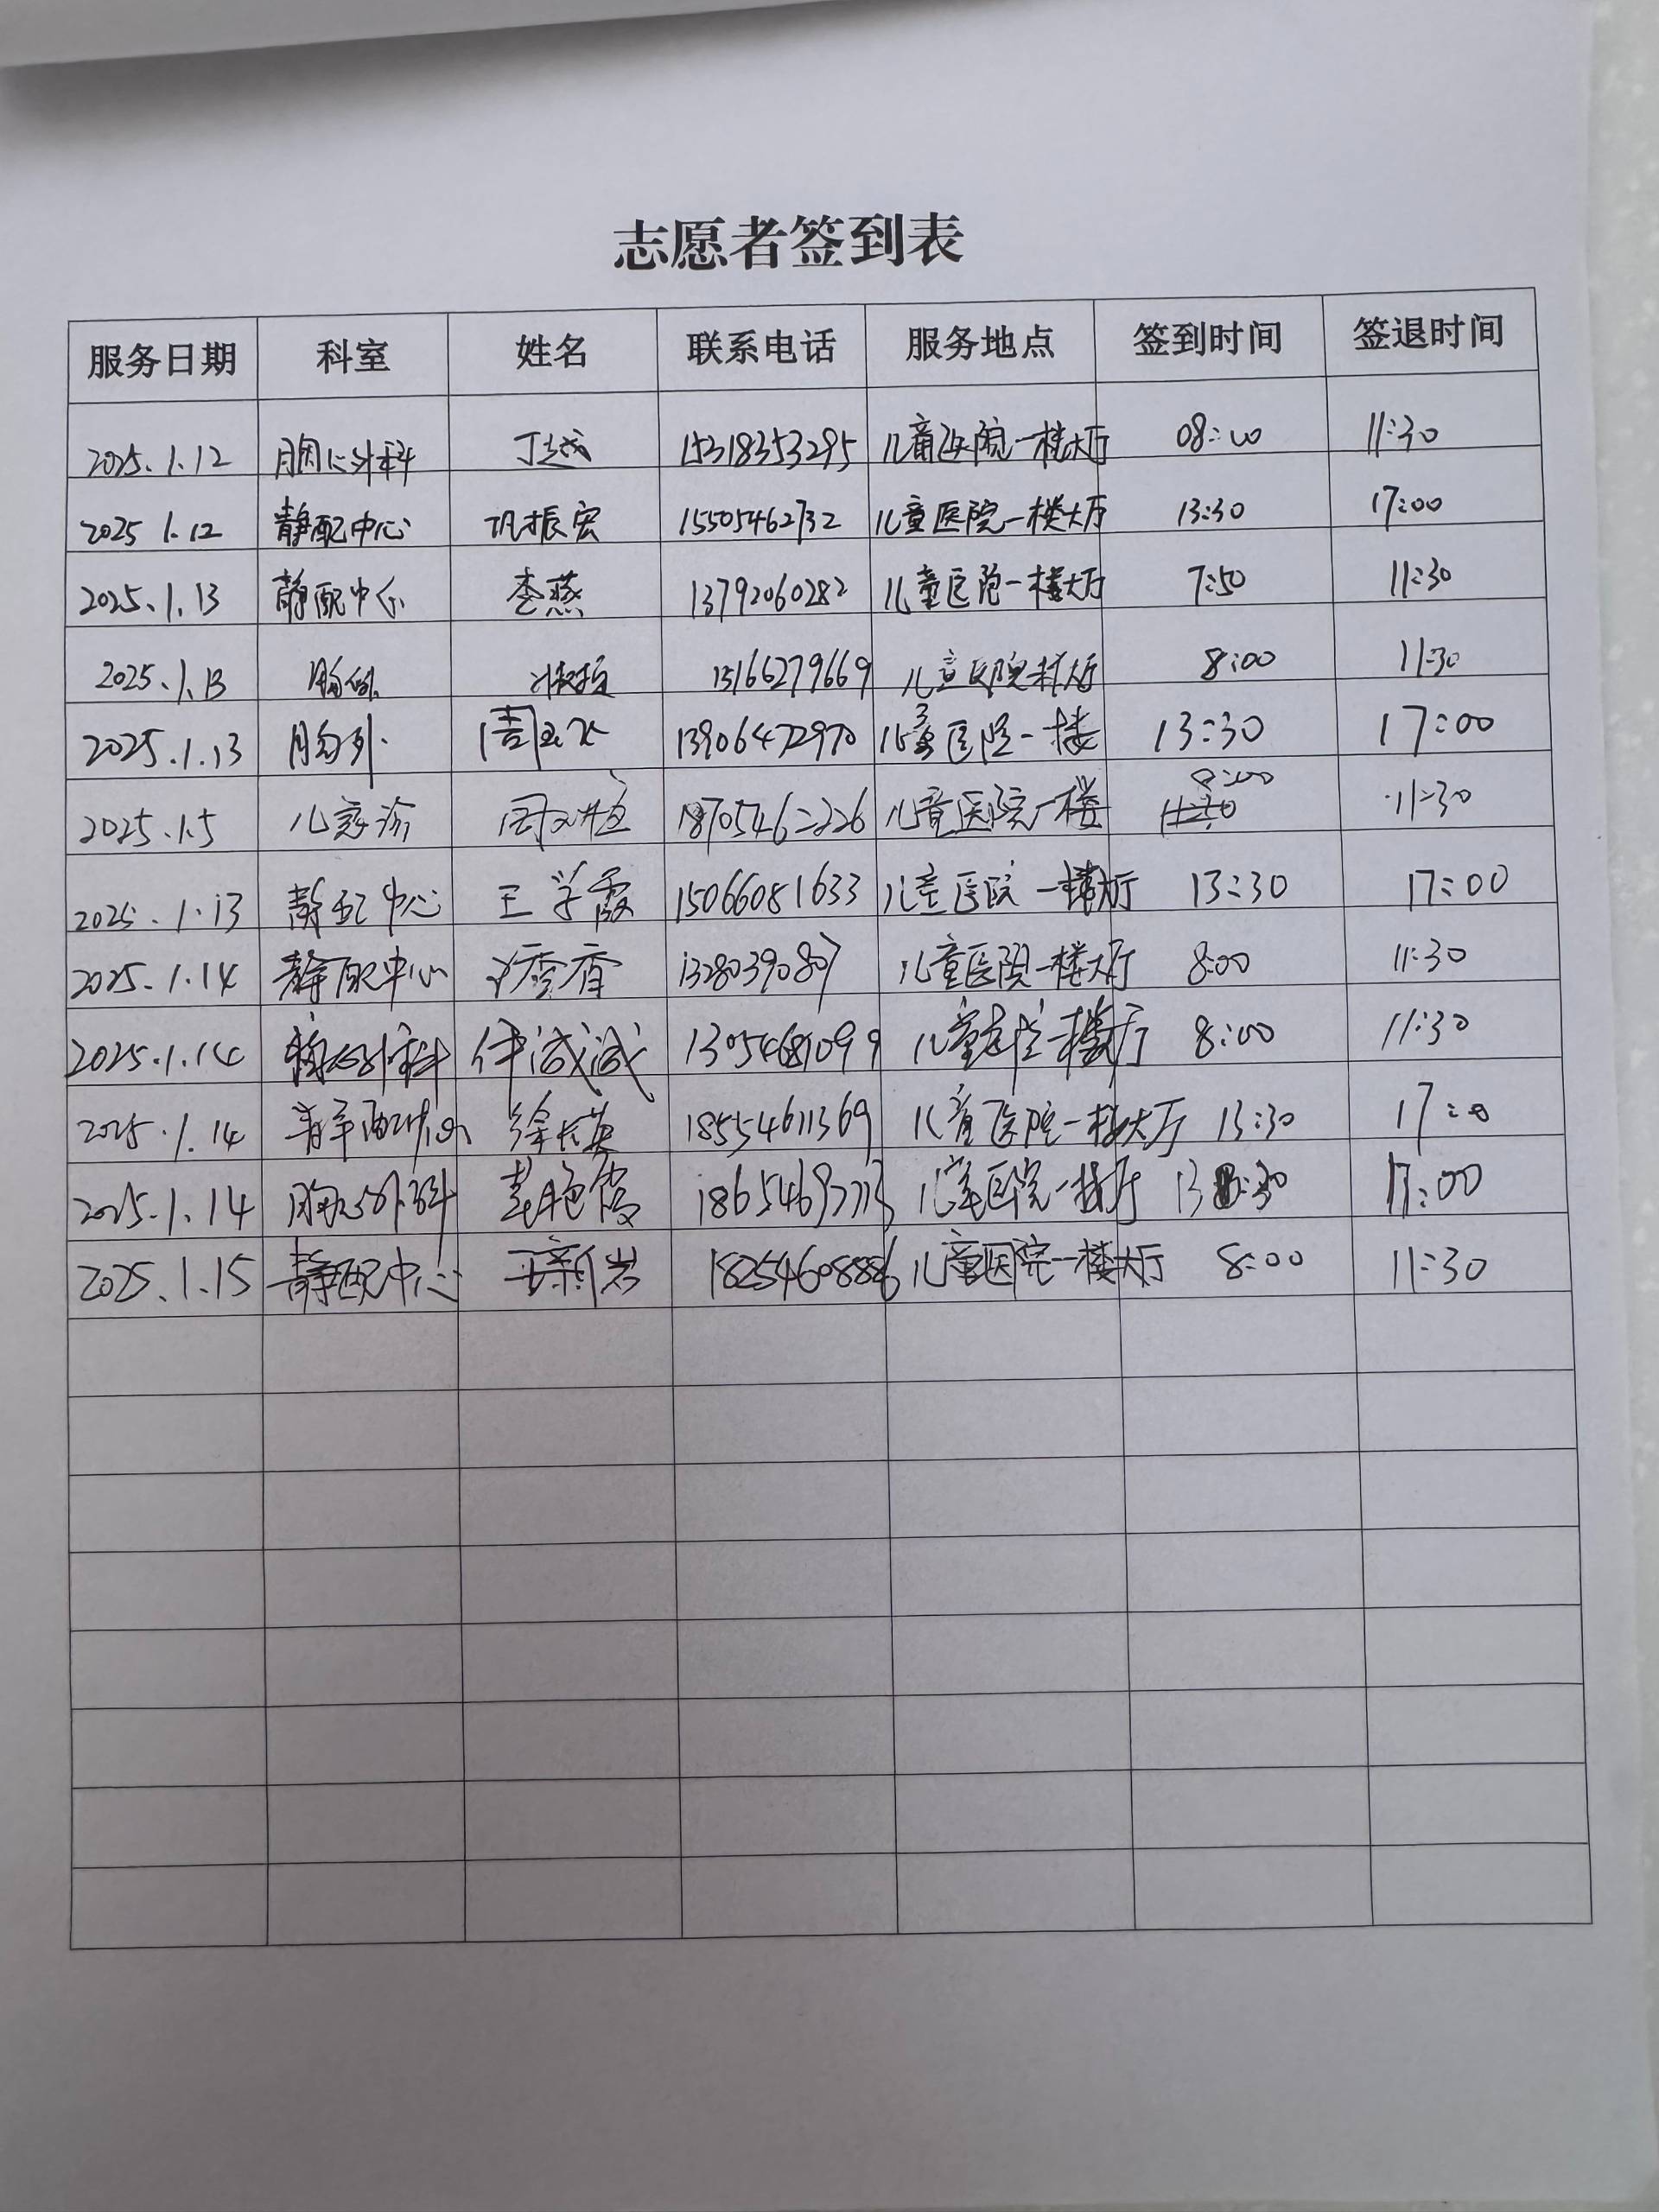 志愿者签到表
服务日期 科室 姓名 联系电话 服务地点 签到时间 签退时间
2025.1.12 胸心外科 丁越 15318353295 儿童医院一楼大厅 08:00 11:30
2025 1.12 静配中心 巩振宏 15505462732 儿童医院一楼大厅 13:30 17:00
2025.1.13 静配中心 李燕 13792060282 儿童医院一楼大厅 7:50 11:30
2025.1.13 胸外 15166279669 儿童医院一楼大厅 8:00 11:30
2025.1.13 胸外 周 13906472970 儿童医院一楼 13:30 17:00
2025.1.5 儿急诊 18705462226 儿童医院一楼 8:00 11:30
2025.1.13 静配中心 王学霞 15066081633 儿童医院一楼大厅 13:30 17:00
2025.1.14 静配中心 13280390807 儿童医院一楼大厅 8:00 11:30
2025.1.14 胸心外科 任诚诚 13054681099 儿童医院一楼大厅 8:00 11:30
2025.1.14 静配中心 徐长英 18554611369 儿童医院一楼大厅 13:30 17:00
2025.1.14 胸心外科 儿童医院一楼大厅 13:30 17:00
2025.1.15 静配中心 18254608886 儿童医院一楼大厅 8:00 11:30